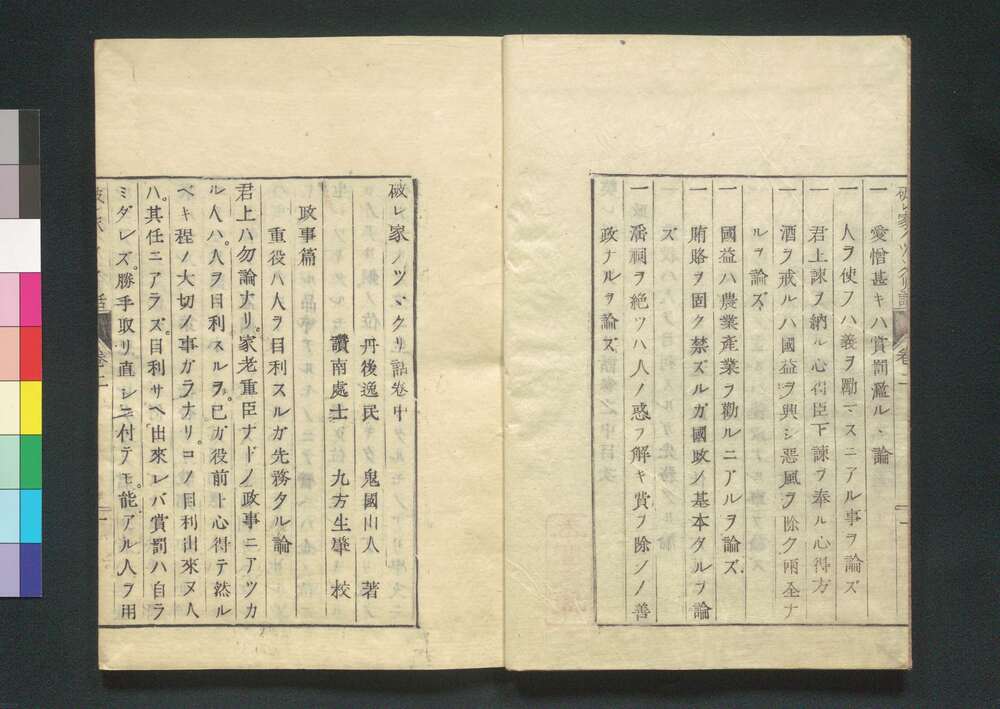 一 愛憎甚キハ賞罰濫ル丶論
一 人ヲ使フハ義ヲ勵マスニアル事ヲ論ズ
一 君上諫ヲ納ル心得臣下諫ヲ奉ル心得方
一 酒ヲ戒ルハ國益ヲ興シ惡風ヲ除ク兩全ナ
ルヲ論ズ
一 國益ハ農業産業ヲ勸ルニアルヲ論ズ
一 賄賂ヲ固ク禁ズルガ國政ノ基本タルヲ論
ズ
一 淫祠ヲ絶ツハ人ノ惑ヲ解キ賞ヲ除クノ善
政ナルヲ論ズ
破レ家ノツヾクリ話卷中
丹後逸民 鬼國山人 著
讚南處士 九方生皐 校
政事篇
重役ハ人ヲ目利スルガ先務タル論
君上ハ勿論ナリ。家老重臣ナドノ政事ニアツカ
ル人ハ。人ヲ目利スルヲ。已ガ役前ト心得テ然ル
ベキ程ノ大切ノ事ガラナリ。コノ目利出來ヌ人
ハ。其任ニアラズ。目利サヘ出來レバ賞罰ハ自ラ
ミダレズ。勝手取リ直シニ付テモ。能アル人ヲ用